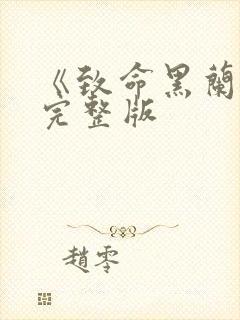 《致命黑蘭
完整版
趙零